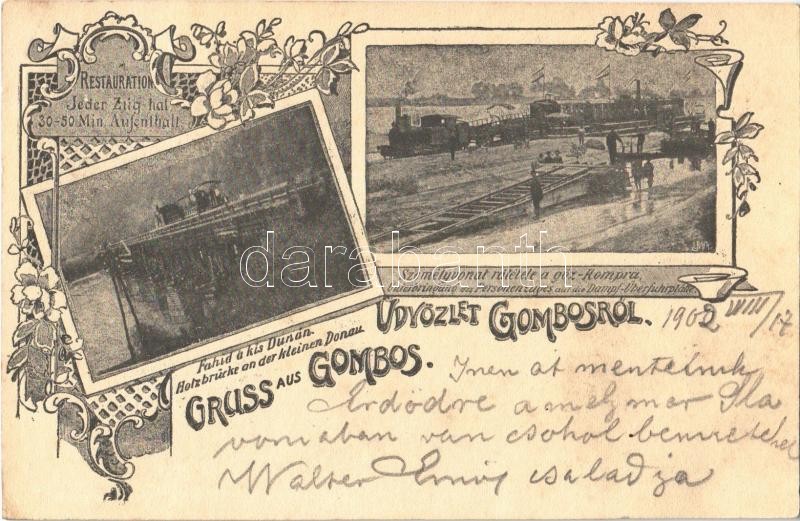 RESTAURATION
Jeder Zug hat
30-50 Min. Aufenthalt.
Személyvonat rátétele a góz-Kompra.
eines Personenzuges auf die Dampf-Überfuhrplätte.
Fahid a kis Dunán.
Holzbrücke an der kleinen Donau.
ÜDVÖZLET GOMBOSRÓL.
GRUSS AUS GOMBOS.
1902 VIII/17
Innen át mentelnuk
Erdődre a mely mar Sla
voniaban van csohol
Walter Ernő csaladja
darabanth